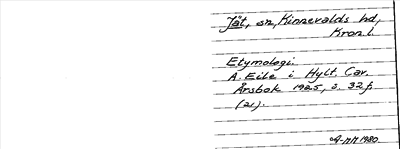 Jät, sn, Kinnevalds hd,
Kron.l.
Etymologi.
A. Eile i Hylt. Cav.
Årsbok 1925, s. 32 f.
(21).
A-M 1980.